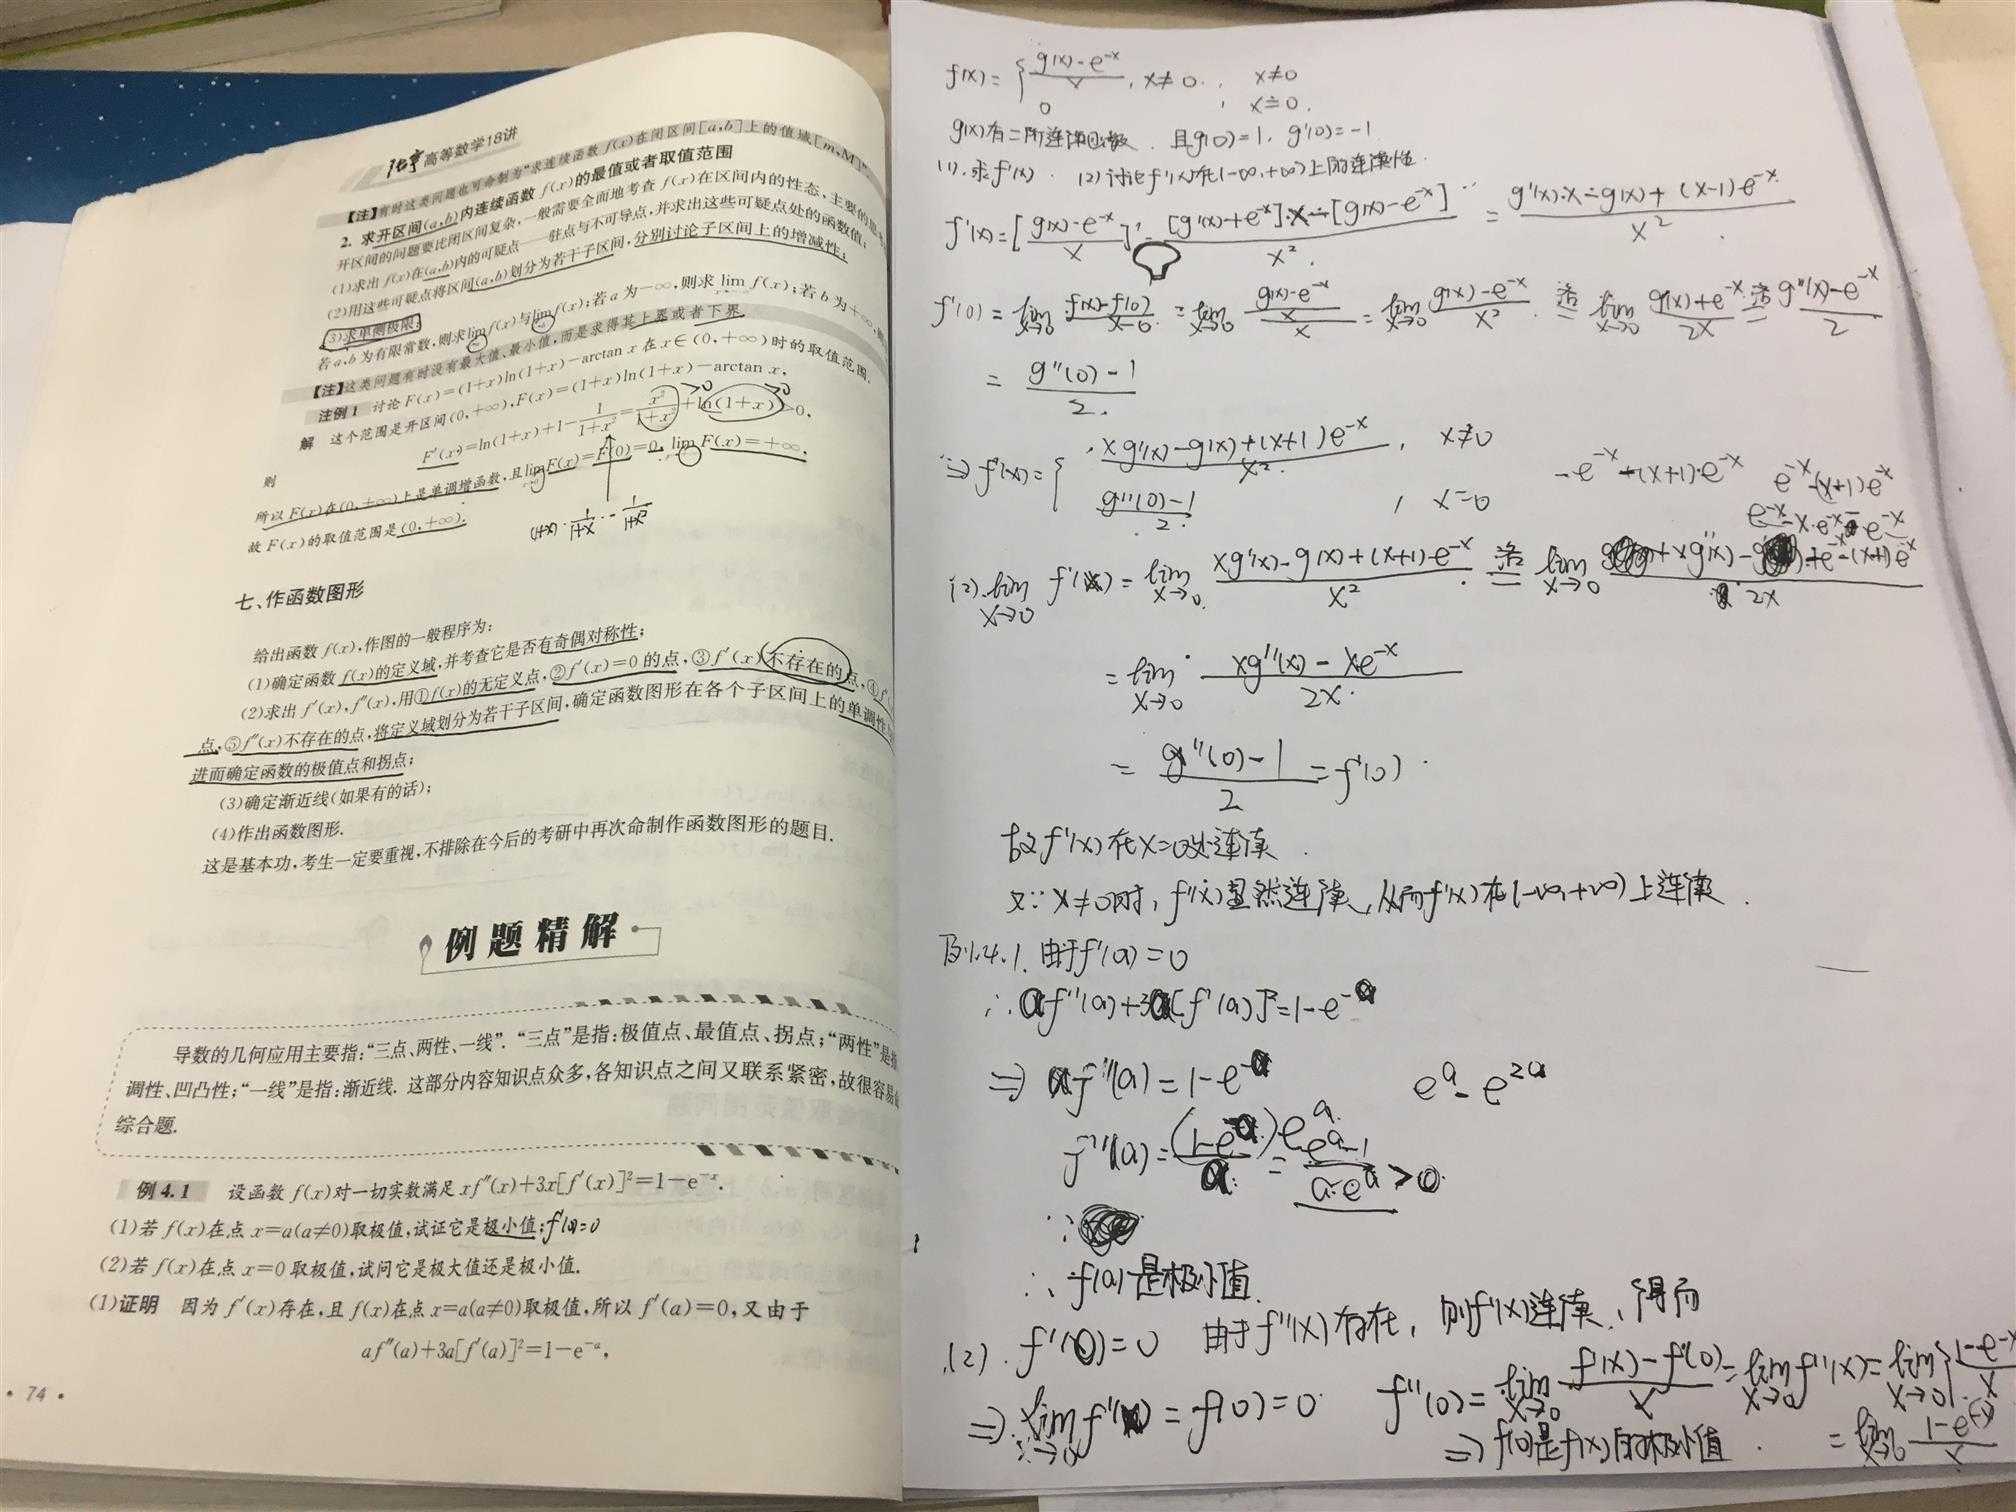 张宇高等数学18讲
【注】有时这类问题也可命制为“求连续函数 f(x)在闭区间[a,b]上的值域[m,M]”
2. 求开区间(a,b)内连续函数 f(x)的最值或者取值范围
开区间的问题要比闭区间复杂,一般需要全面地考查 f(x)在区间内的性态,主要的
(1)求出 f(x)在(a,b)内的可疑点——驻点与不可导点,并求出这些可疑点处的函数值;
(2)用这些可疑点将区间(a,b)划分为若干子区间,分别讨论子区间上的增减性;
(3)求单侧极限:
若 a,b 为有限常数,则求lim f(x)与lim f(x);若 a 为-∞,则求 lim f(x);若 b 为+∞,
【注】这类问题有时没有最大值、最小值,而是求得其上界或者下界.
注例1 讨论 F(x)=(1+x)ln(1+x)-arctan x 在 x∈(0,+∞)时的取值范围.
解 这个范围是开区间(0,+∞),F(x)=(1+x)ln(1+x)-arctan x,
F′(x)=ln(1+x)+1-1/(1+x²)=x²/(1+x²)+ln(1+x)>0,
>0 >0
则
所以 F(x)在(0,+∞)上是单调增函数,且lim F(x)=F(0)=0, lim F(x)=+∞,
故 F(x)的取值范围是(0,+∞).
(1+x)·1/(1+x) - 1/(1+x²)
七、作函数图形
给出函数 f(x),作图的一般程序为:
(1)确定函数 f(x)的定义域,并考查它是否有奇偶对称性;
(2)求出 f′(x),f″(x),用①f(x)的无定义点,②f′(x)=0 的点,③f′(x)不存在的点,④f″
点,⑤f″(x)不存在的点,将定义域划分为若干子区间,确定函数图形在各个子区间上的单调性
进而确定函数的极值点和拐点;
(3)确定渐近线(如果有的话);
(4)作出函数图形.
这是基本功,考生一定要重视,不排除在今后的考研中再次命制作函数图形的题目.
例题精解
导数的几何应用主要指:“三点、两性、一线”. “三点”是指:极值点、最值点、拐点;“两性”是
调性、凹凸性;“一线”是指:渐近线. 这部分内容知识点众多,各知识点之间又联系紧密,故很容易
综合题.
例4.1 设函数 f(x)对一切实数满足 xf″(x)+3x[f′(x)]²=1-e⁻ˣ.
(1)若 f(x)在点 x=a(a≠0)取极值,试证它是极小值; f′(a)=0
(2)若 f(x)在点 x=0 取极值,试问它是极大值还是极小值.
(1)证明 因为 f′(x)存在,且 f(x)在点 x=a(a≠0)取极值,所以 f′(a)=0,又由于
af″(a)+3a[f′(a)]²=1-e⁻ᵃ,
• 74 •
f(x)={ (g(x)-e⁻ˣ)/x , x≠0. , x≠0
0 , x=0.
g(x)有二阶连续函数,且g(0)=1, g′(0)=-1
(1).求f′(x). (2)讨论f′(x)在(-∞,+∞)上的连续性.
f′(x)=[(g(x)-e⁻ˣ)/x]′=([g′(x)+e⁻ˣ]·x-[g(x)-e⁻ˣ])/x² = (g′(x)·x-g(x)+(x-1)e⁻ˣ)/x²
f′(0)=lim x→0 (f(x)-f(0))/(x-0)=lim x→0 ((g(x)-e⁻ˣ)/x)/x=lim x→0 (g(x)-e⁻ˣ)/x² 洛= lim x→0 (g′(x)+e⁻ˣ)/2x 洛= (g″(x)-e⁻ˣ)/2
= (g″(0)-1)/2.
⇒ f′(x)={ (xg′(x)-g(x)+(x+1)e⁻ˣ)/x² , x≠0
(g″(0)-1)/2 , x=0
-e⁻ˣ-(x+1)·e⁻ˣ e⁻ˣ-(x+1)e⁻ˣ
e⁻ˣ-x·e⁻ˣ-e⁻ˣ
(2).lim x→0 f′(x)=lim x→0 (xg′(x)-g(x)+(x+1)·e⁻ˣ)/x² 洛= lim x→0 (+xg″(x)-+e⁻ˣ-(x+1)e⁻ˣ)/2x
=lim x→0 (xg″(x)-xe⁻ˣ)/2x
= (g″(0)-1)/2 =f′(0)
故f′(x)在x=0处连续.
又∵x≠0时,f′(x)显然连续,从而f′(x)在(-∞,+∞)上连续.
例4.1. 由于f′(a)=0
∴ af″(a)+3a[f′(a)]²=1-e⁻ᵃ
⇒ af″(a)=1-e⁻ᵃ
eᵃ-e²ᵃ
f″(a)=(1-e⁻ᵃ)eᵃ/a=(eᵃ-1)/(a·eᵃ)>0
∵
∴ f(a)是极小值
(2). f′(0)=0 由于f″(x)存在,则f′(x)连续,得而
⇒ lim x→0 f′(x)=f(0)=0 f″(0)=lim x→0 (f′(x)-f′(0))/x=lim x→0 f″(x)=lim x→0 { (1-e⁻ˣ)/x
⇒ f(0)是f(x)的极小值. =lim x→0 (1-e⁻ˣ)/x